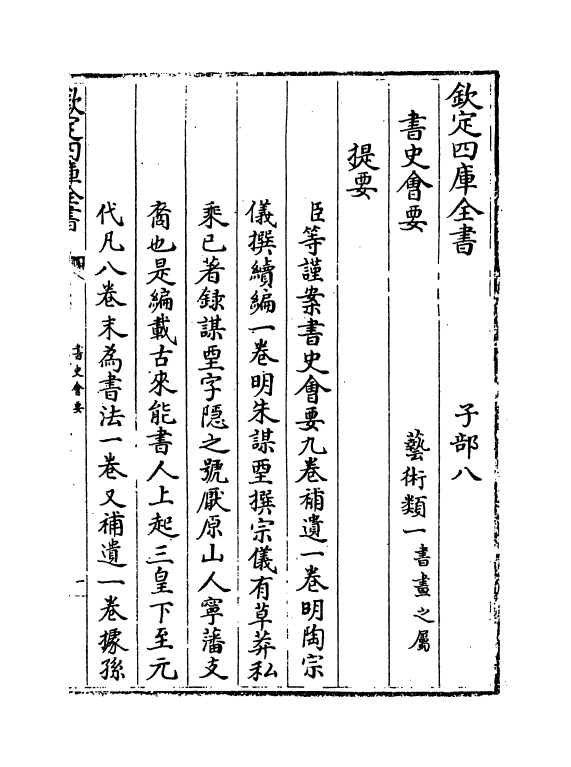 欽定四庫全書 子部八
書史會要 藝術類一書畫之屬
提要
臣等謹案書史會要九卷補遺一卷明陶宗
儀撰續編一卷明朱謀垔撰宗儀有草莽私
乘已著録謀垔字隠之號厭原山人寧藩支
裔也是編載古來能書人上起三皇下至元
代凡八卷末為書法一卷又補遺一卷據孫
欽定四庫全書
書史會要
一